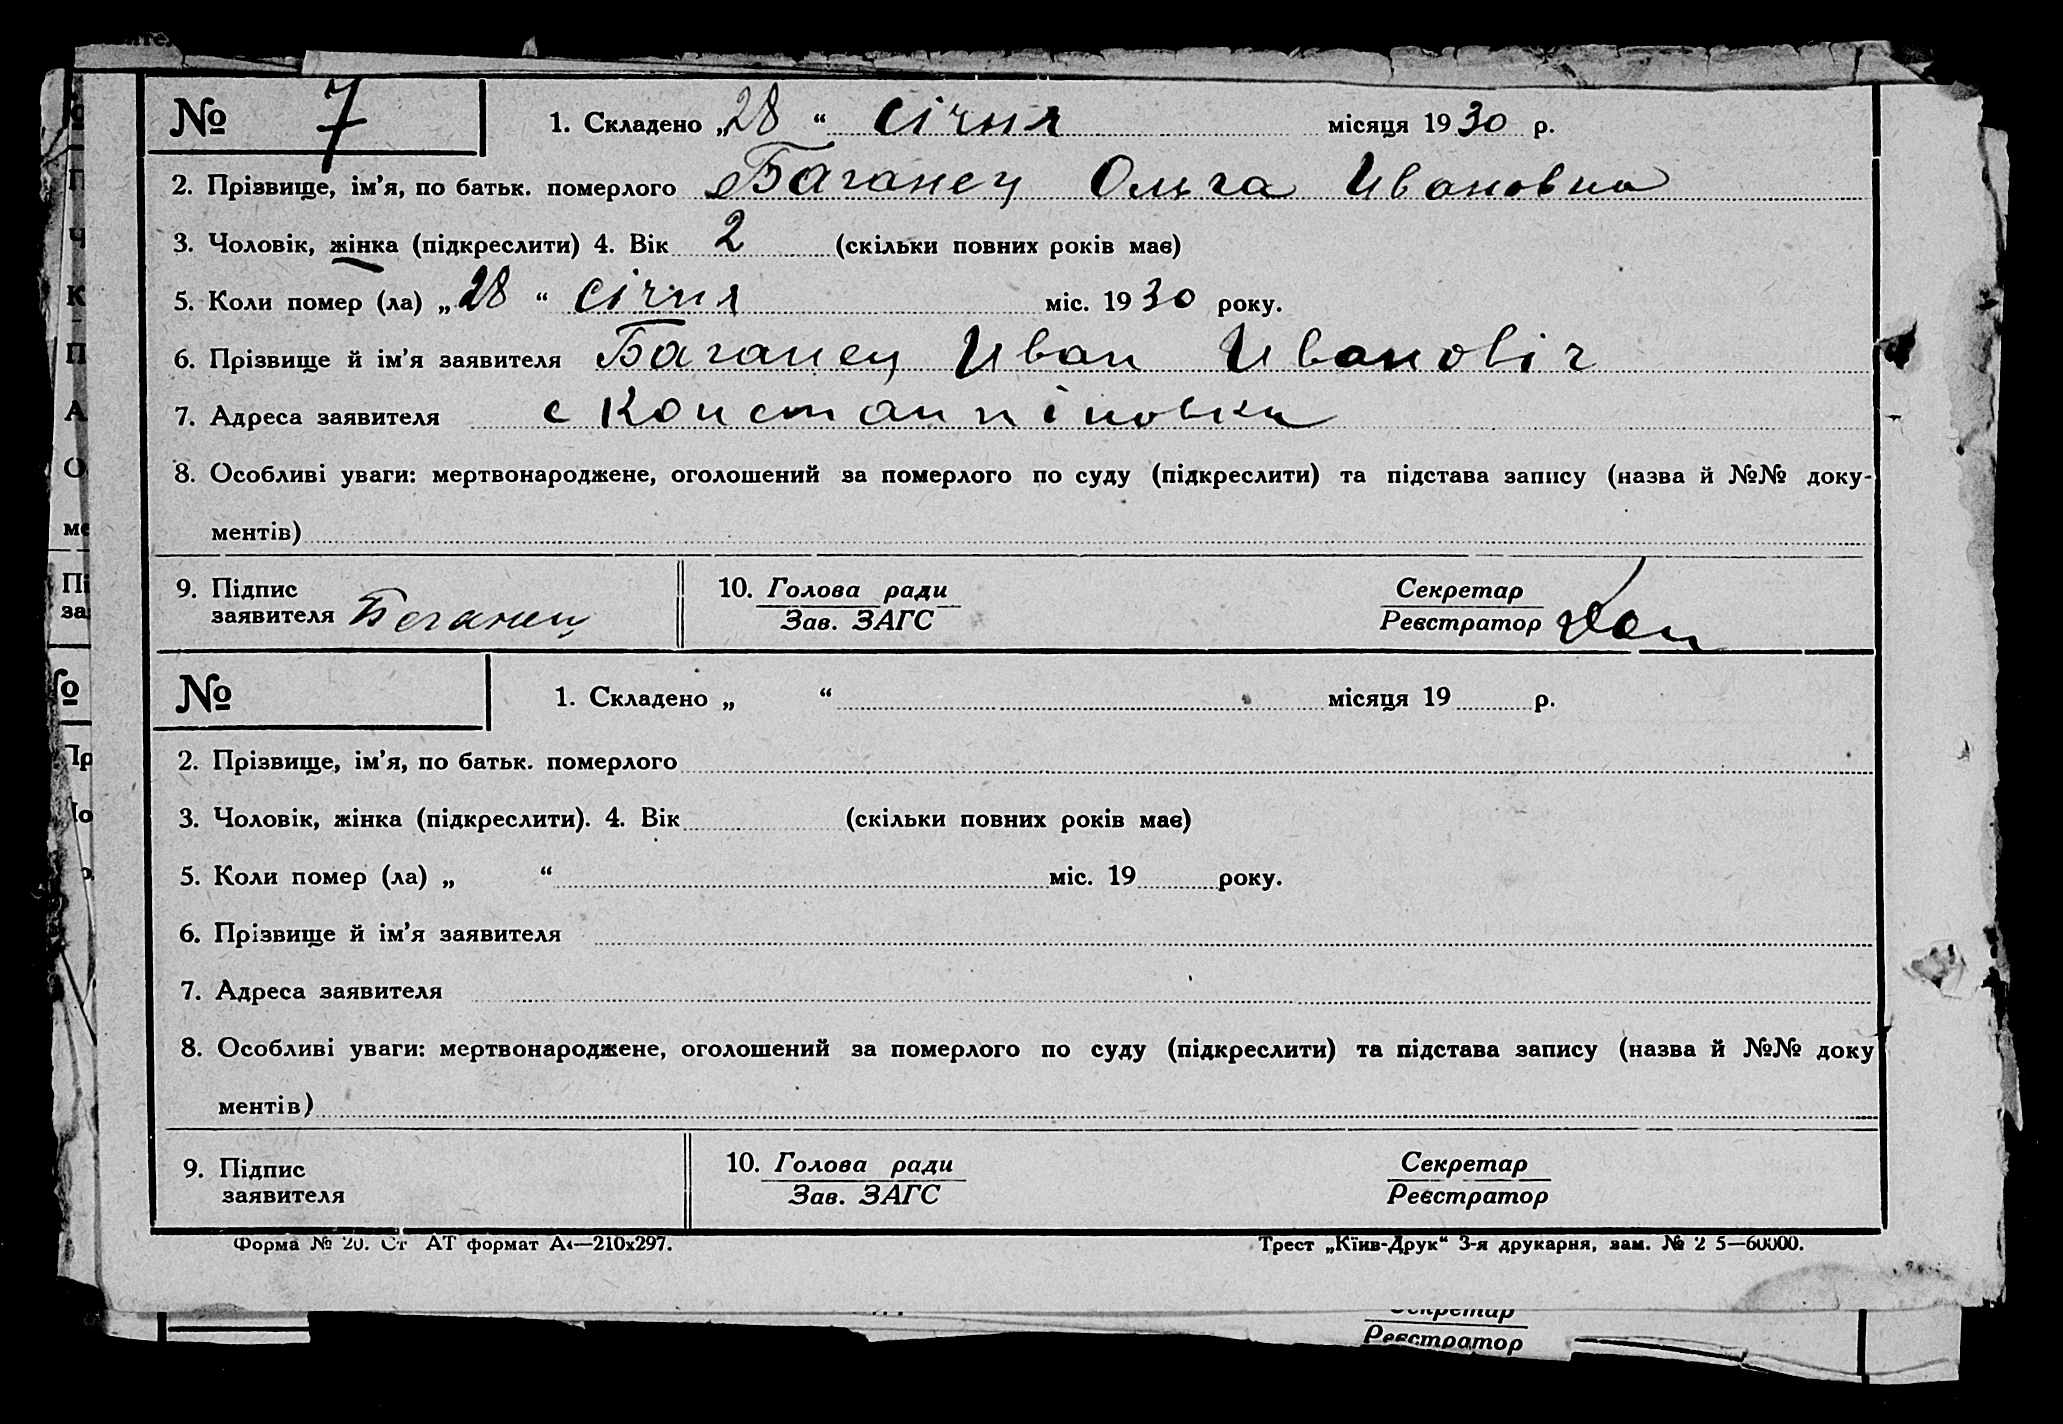 № 7 1. Складено „28“ січня місяця 1930 р.
2. Прізвище, ім’я, по батьк. померлого Баганец Ольга Ивановна
3. Чоловік, жінка (підкреслити) 4. Вік 2 (скільки повних років має)
5. Коли помер (ла) „28“ січня міс. 1930 року.
6. Прізвище й ім’я заявителя Баганец Иван Ивановіч
7. Адреса заявителя с Константіновки
8. Особливі уваги: мертвонароджене, оголошений за померлого по суду (підкреслити) та підстава запису (назва й №№ доку-
ментів)
9. Підпис 10. Голова ради Секретар
заявителя Баганец Зав. ЗАГС Реєстратор
№ 1. Складено „ “ місяця 19 р.
2. Прізвище, ім’я, по батьк. померлого
3. Чоловік, жінка (підкреслити). 4. Вік (скільки повних років має)
5. Коли помер (ла) „ “ міс. 19 року.
6. Прізвище й ім’я заявителя
7. Адреса заявителя
8. Особливі уваги: мертвонароджене, оголошений за померлого по суду (підкреслити) та підстава запису (назва й №№ доку
ментів)
9. Підпис 10. Голова ради Секретар
заявителя Зав. ЗАГС Реєстратор
Форма № 20. Ст АТ формат А4—210х297. Трест „Київ-Друк“ 3-я друкарня, зам. № 2 5—60000.
Секретар
Реєстратор